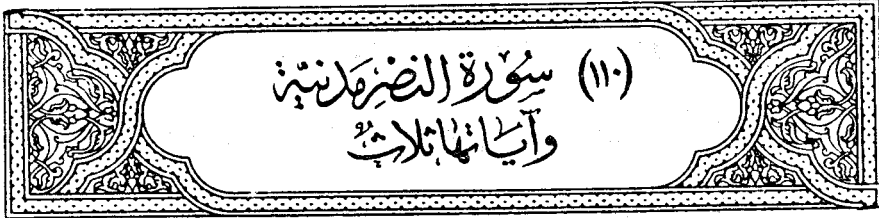 (١١٠) سُورَة النَّصْرِ مَدَنيَّة
وَآيَاتهَا ثَلاثٌ